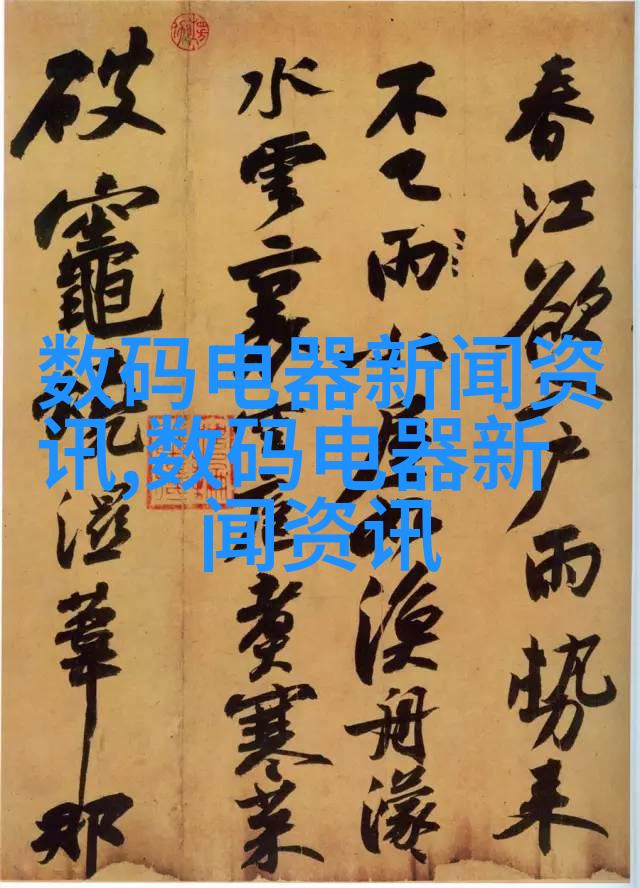 春江欲入户雨勢来
不已雨小屋如漁舟濛
水雲裏空庖煮寒菜
破竈燒濕葦那
数码电器新闻资
讯,数码电器新
闻资讯